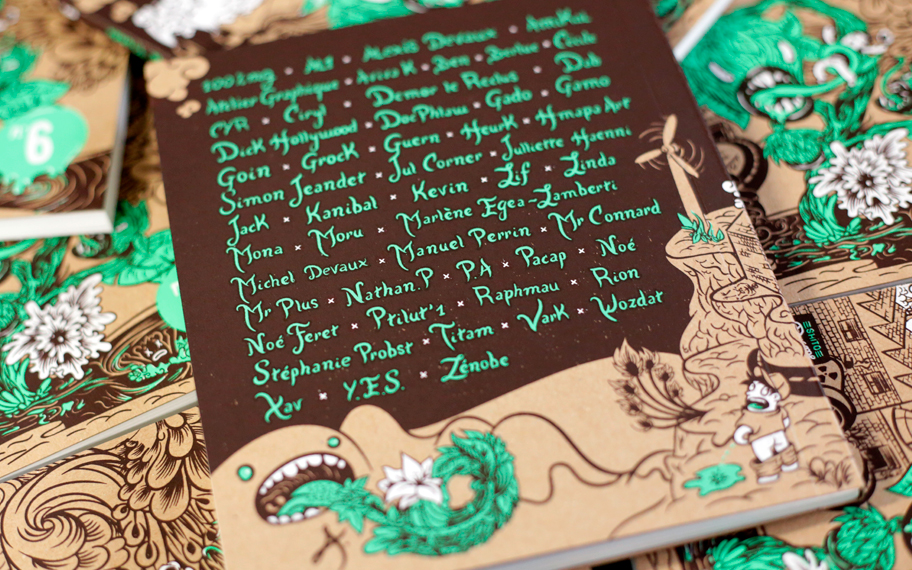 100Lmg • M1 • Alexis Devaux • AmKat
Atelier Graphique • Aries K • Ben • Bertus • Cécile
C/R • Ciryl • Demor le Rectus • Dub
Dick Hollywood • DocPhtaus • Gado • Gomo
Goin • Grock • Guern • Heurk • Hmaps Art
Simon Jeander • Jul Corner • Jullierre Haenni
Jack • Kanibal • Kevin • Lif • Linda
Mona • Moru • Marlène Egea-Lamberti
Michel Devaux • Manuel Perrin • Mr Connard
Mr Plus • Nathan.P • P.A • Pacap • Noé
Noé Feret • Ptilut'1 • Raphmau • Rion
Stéphanie Probst • Titam • Vark • Wozdat
Xav • Y.E.S. • Zénobe
6